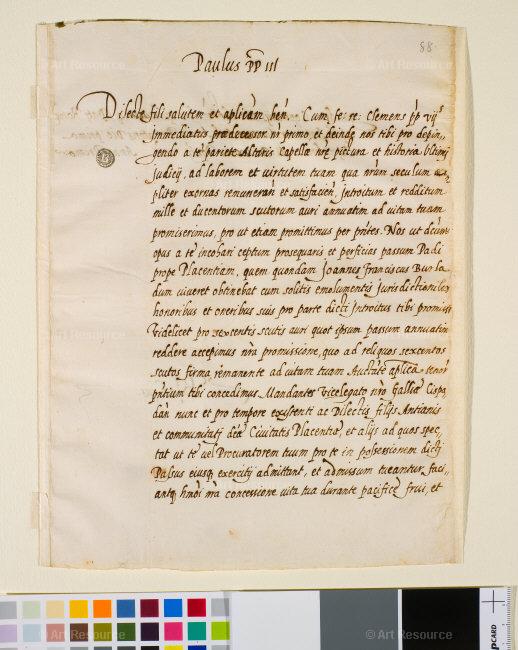 88
Paulus PP III
Dilecte fili salutem et aplicam ben. Cum fe: re: Clemens PP VIJs
Immediatus predecessor nr primo, et deinde nos tibi pro depin,
gendo a te pariete Altaris Capellæ nre pictura et historia Ultimi
Judicij, ad laborem et virtutem tuam qua nrum seculum
pliter exornas remuneran et satisfacien, introitum et redditum
mille et ducentorum scutorum auri annuatim ad vitam tuam
promiserimus, pro ut etiam promittimus per pntes. Nos ut dictum
opus a te inchoari ceptum prosequaris et perficias passum Padi
prope Placentiam, quem quondam Joannes Franciscus Burla
dum viveret obtinebat cum solitis emolumentis jurisdictionibus
honoribus et oneribus suis pro parte dicti introitus tibi promissi
Videlicet pro sexcentis scutis auri quot ipsum passum annuatim
reddere accepimus nra promissione, quo ad reliquos sexcentos
scutos firma remanente ad vitam tuam Auctte aplica tenor
pntium tibi concedimus Mandantes Vicelegato nro Galliæ Cispa,
dan nunc et pro tempore existenti ac Dilectis filijs Antianis
et communitati dcte Civitatis Placentiæ, et alijs ad quos spec,
tat ut te vel Procuratorem tuum pro te in possessionem dicti
Passus eiusq exercitij admittant, et admissum tueantur faci,
antq hmoi nra concessione vita tua durante pacifice frui, et
© Art Resource
© Art Resource
© Art Resource
© Art Resource
© Art Resource